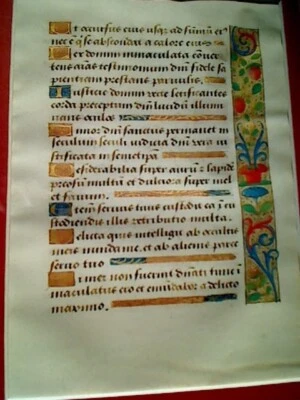 Et occursus eius usq; ad sumū eꝰ
nec ē q̄ se abscondat a calore eius
Lex domini immaculata cōuer
tens aīas testimonium dn̄i fidele sa
pientiam prestans paruulis.
Iusticie domini recte letificantes
corda preceptum dn̄i lucidū illumi
nans oculos
Timor dn̄i sanctus permanet in
seculum seculi iudicia dn̄i vera iu
stificata in semetipa
Desiderabilia super aurū ⁊ lapidē
preciosū multū et dulciora super mel
et fauum.
Etem seruus tuus custodit ea ī cu
stodiendis illis retributio multa.
Delicta quis intelligit ab occultis
meis munda me. et ab alienis parce
seruo tuo
Si mei non fuerint dn̄ati tunc ī
maculatus ero et emūdabor a delicto
maximo.